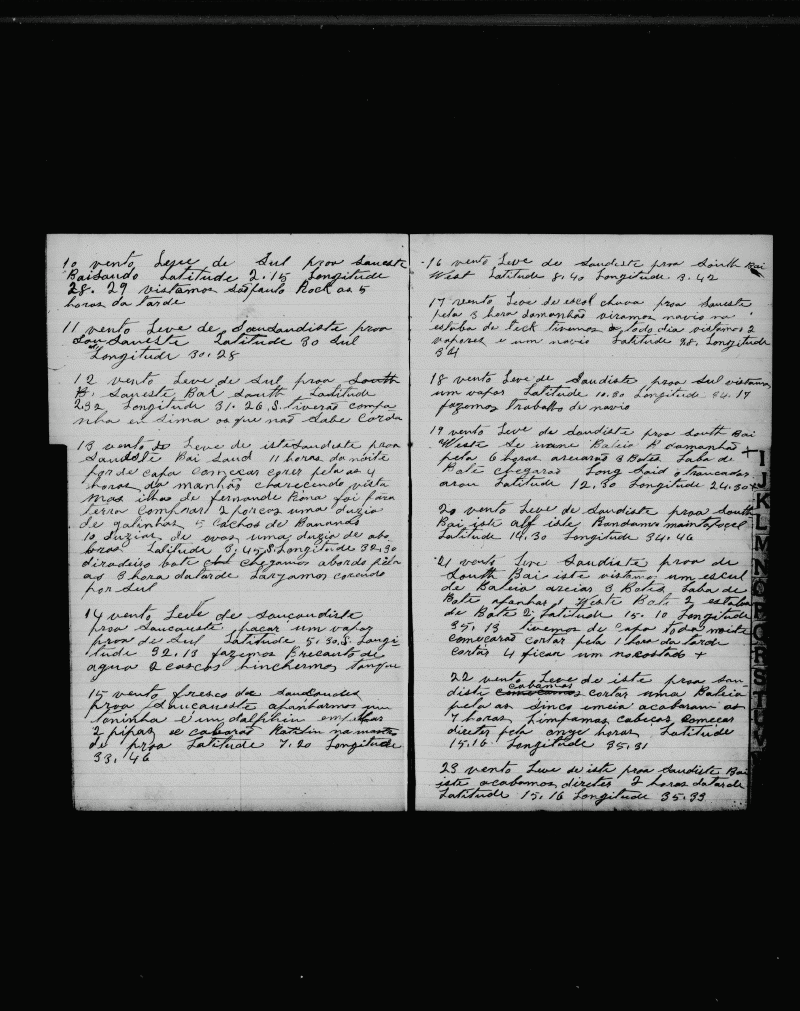 10 vento Leve de Sul proa Saueste
Baisaudo Latitude 2.15 Longitude
28.29 vistamos São paulo Rock as 5
horas da tarde
11 vento Leve de Sausaudiste proa
Sausaueste Latitude 30 Sul
Longitude 30.28
12 vento Leve de Sul proa South
Saueste Bai South Latitude
232 Longitude 31.26.S. tiverão compa
nha en sima os que não Sabe Corda
13 vento Leve de iste Saudeste proa
Saudste Bai Saud 11 horas da noite
por de capa Comecar corer pela as 4
horas da manhão clarecendo vista
mos ilha de fernande Rona foi para
terra Comprar 2 porcos uma duzia
de galinhas 5 Cachos de Bananos
10 duzias de ovos uma duzia de abo
bras Latitude 3.45.S. Longitude 32.30
diradeiro bote chegamos abordo pela
as 3 hora datarde Largamos corendo
por Sul
14 vento Leve de Saucaudiste
proa Saucaueste pacar um vapor
proa de Sul Latitude 5.30.S. Longi-
tude 32.13 fazemos Brecauto de
agua 2 cascos hinchermos tanque
15 vento fresco de Saudaudes
proa Saucaueste apanharmos um
toninha e um dalphin
2 pipas e cabaras na mastro
de proa Latitude 7.20 Longitude
33.46
16 vento Leve de Saudiste proa South Bai
West Latitude 8.40 Longitude 3.42
17 vento Leve de escol chuva proa Saueste
pela 3 hora damanhão viramos navio na
estaba de teck tivemos todo dia vistamos 2
vapores e um navio Latitude 28. Longitude
34
18 vento Leve de Saudiste proa Sul vistamos
um vapor Latitude 10.30 Longitude 34.17
fazemos trabalho de navio
19 vento Leve de Saudiste proa South Bai
Weste Se Baleia A damanhão +
pela 6 horas arearão 3 Botes Laba de
Bote chegarão Long Said trancados
arou Latitude 12.30 Longitude 24.30 +
20 vento Leve de Saudiste proa South
Bai iste alf iste Bandamos maintopcel
Latitude 14.30 Longitude 34.46
21 vento Leve Saudiste proa de
South Bai iste vistamos um escul
de Baleia arciar 3 Botes Laba de
Bote apanhar 1 Weste Bote 2 estaba
de Bote 2 Latitude 15.10 Longitude
35.13 tivemos de Capa todas noite
comecarão cortar pela 1 hora da tarde
cortar 4 ficar um nocostado +
22 vento Leve de iste proa Sau-
diste cabamos cortar uma Baleia
pela as sinco emeia acabaram as
7 horas Limpamos cabeças Comecar
direter pela onze horas Latitude
15.16 Longitude 35.31
23 vento Leve de iste proa Saudiste Bai
iste acabamos direter 2 horas datarde
Latitude 15.16 Longitude 35.33
I
J
K
L
M
N
O
P
Q
R
S
T
U
V